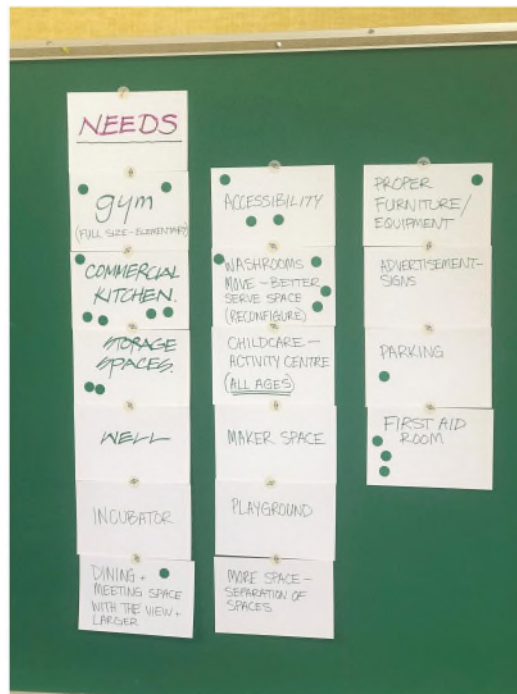 NEEDS
gym
(FULL SIZE - ELEMENTARY)
COMMERCIAL
KITCHEN.
STORAGE
SPACES.
WELL
INCUBATOR
DINING +
MEETING SPACE
WITH THE VIEW +
LARGER
ACCESSIBILITY
WASHROOMS
MOVE - BETTER
SERVE SPACE
(RECONFIGURE)
CHILDCARE -
ACTIVITY CENTRE
(ALL AGES)
MAKER SPACE
PLAYGROUND
MORE SPACE -
SEPARATION OF
SPACES.
PROPER
FURNITURE/
EQUIPMENT
ADVERTISEMENT-
SIGNS
PARKING
FIRST AID
ROOM